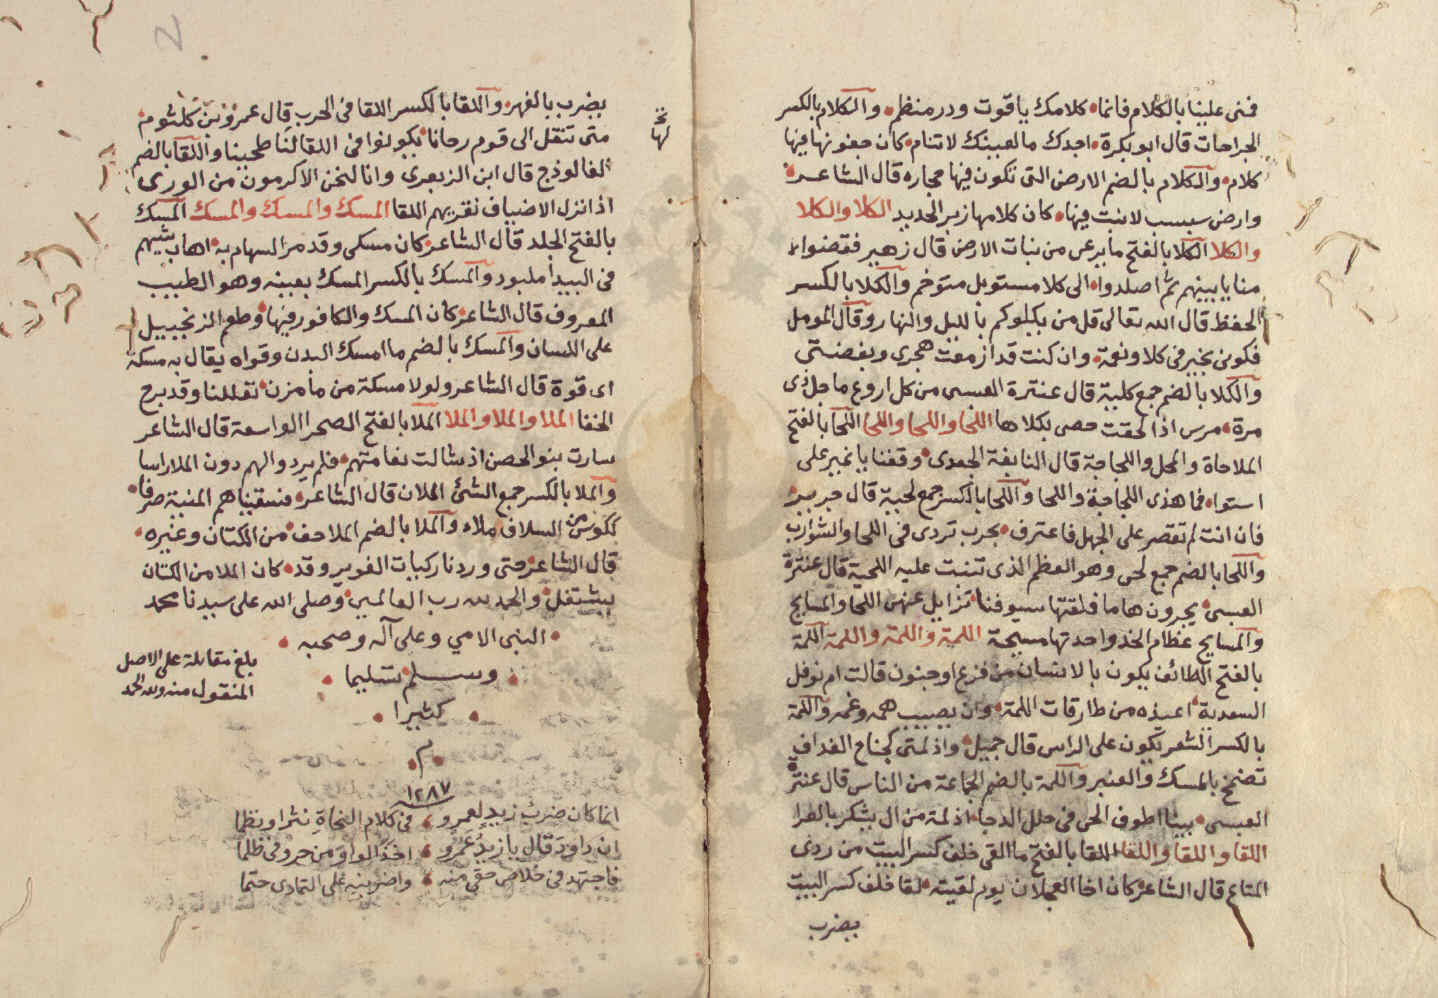 فننى علينا بالكلام فانما كلامك ياقوت ودر منظم والكلام بالكسر
الجراحات قال ابو بكرة اجدك ما لعينك لا تنام كان جفونها فيها
كلام والكلام بالضم الارض التى تكون فيها حجاره قال الشاعر
وارض سبسب لا نبت فيها كان كلامها زبر الحديد الكلا والكلا
والكلا الكلا بالفتح ما يرعى من نبات الارض قال زهير فقضوا
منايا بينهم ثم اصلدوا الى كلا مستوبل متوخم والكلا بالكسر
الحفظ قال الله تعالى قل من يكلوكم بالليل والنهار وقال المومل
فكونى بخير فى كلا ونعمة وان كنت قد ازمعت هجرى وبغضتى
والكلا بالضم جمع كلية قال عنترة العبسى من كل اروع ماجد ذى
مرة مرس اذا لحقت خصى بكلاها اللحا واللحا واللحا اللحا بالفتح
الملاحاة والمحل واللجاجة قال النابغة الجعدى وقفنا يا نمير على
استوا فما هذى اللجاجة واللحا واللحا بالكسر جمع لحية قال جرير
فان انت لم تقصر على الجهل فاعترف بحرب تردى فى اللحا والشوارب
واللحا بالضم جمع لحى وهو العظم الذى تنبت عليه اللحية قال عنترة
العبسى يجرون هاما فلقتها سيوفنا تزايل عنهن اللحا والمسايح
والمسايح عظام الخد واحدتها مسيحة اللمة واللمة واللمة اللمة
بالفتح الطائف يكون بالانسان من فزع او جنون قالت ام نوفل
السعدية اعيذه من طارقات اللمة وان يصيب همه وغمه واللمة
بالكسر الشعر تكون على الراس قال جميل واذ لمتى كجناح الغداف
تضمخ بالمسك والعنبر واللمة بالضم الجماعة من الناس قال عنترة
العبسى بينا اطوف الحى فى حلل الدجا اذ لمة من ال يشكر بالعرا
اللقا واللقا واللقا اللقا بالفتح ما القى خلف كسر البيت من ردى
المتاع قال الشاعر كان اخا العجلان يوم لقيته لقا خلف كسر البيت
يضرب
يضرب بالفهر واللقا بالكسر اللقا فى الحرب قال عمرو بن كلثوم
متى ننقل الى قوم رحانا يكونوا فى اللقا لنا طحينا واللقا بالضم
الفالوذج قال ابن الزبعرى وانا لنحن الاكرمون من الورى
اذا نزل الاضياف نقريهم اللقا المسك والمسك والمسك المسك
بالفتح الجلد قال الشاعر كان مسكى وقد مر السهام به اهاب شيهم
فى البيدا ملبود والمسك بالكسر المسك بعينه وهو الطيب
المعروف قال الشاعر كان المسك والكافور فيها وطعم الزنجبيل
على اللسان والمسك بالضم ما امسك البدن وقواه يقال به مسكة
اى قوة قال الشاعر ولولا مسكة من ما مزن تقللنا وقد برح
الخفا الملا والملا والملا الملا بالفتح الصحرا الواسعة قال الشاعر
سارت بنو الحصن اذ شالت نعامتهم فلم يردوا لهم دون الملا راسا
والملا بالكسر جمع الشئ الملان قال الشاعر فسقيناهم المنية صرفا
بكوس من السلاف ملاء والملا بالضم الملاحف من الكتان وغيره
قال الشاعر حتى وردنا ركيات الغوير وقد كان الملا من الكتان
يشتعل والحمد لله رب العالمين وصلى الله على سيدنا محمد
النبى الامي وعلى آله وصحبه
وسلم تسليما
كثيرا
م
١٢٨٧
بلغ مقابلة على الاصل
المنقول منه ولله الحمد
انما كان ضرب زيد لعمرو فى كلام النحاة نثرا ونظما
ان داود قال يا زيد عمرو اخذ الواو من حروفى ظلما
فاجتهد فى خلاص حقى منه واضربنه على التمادى حتما